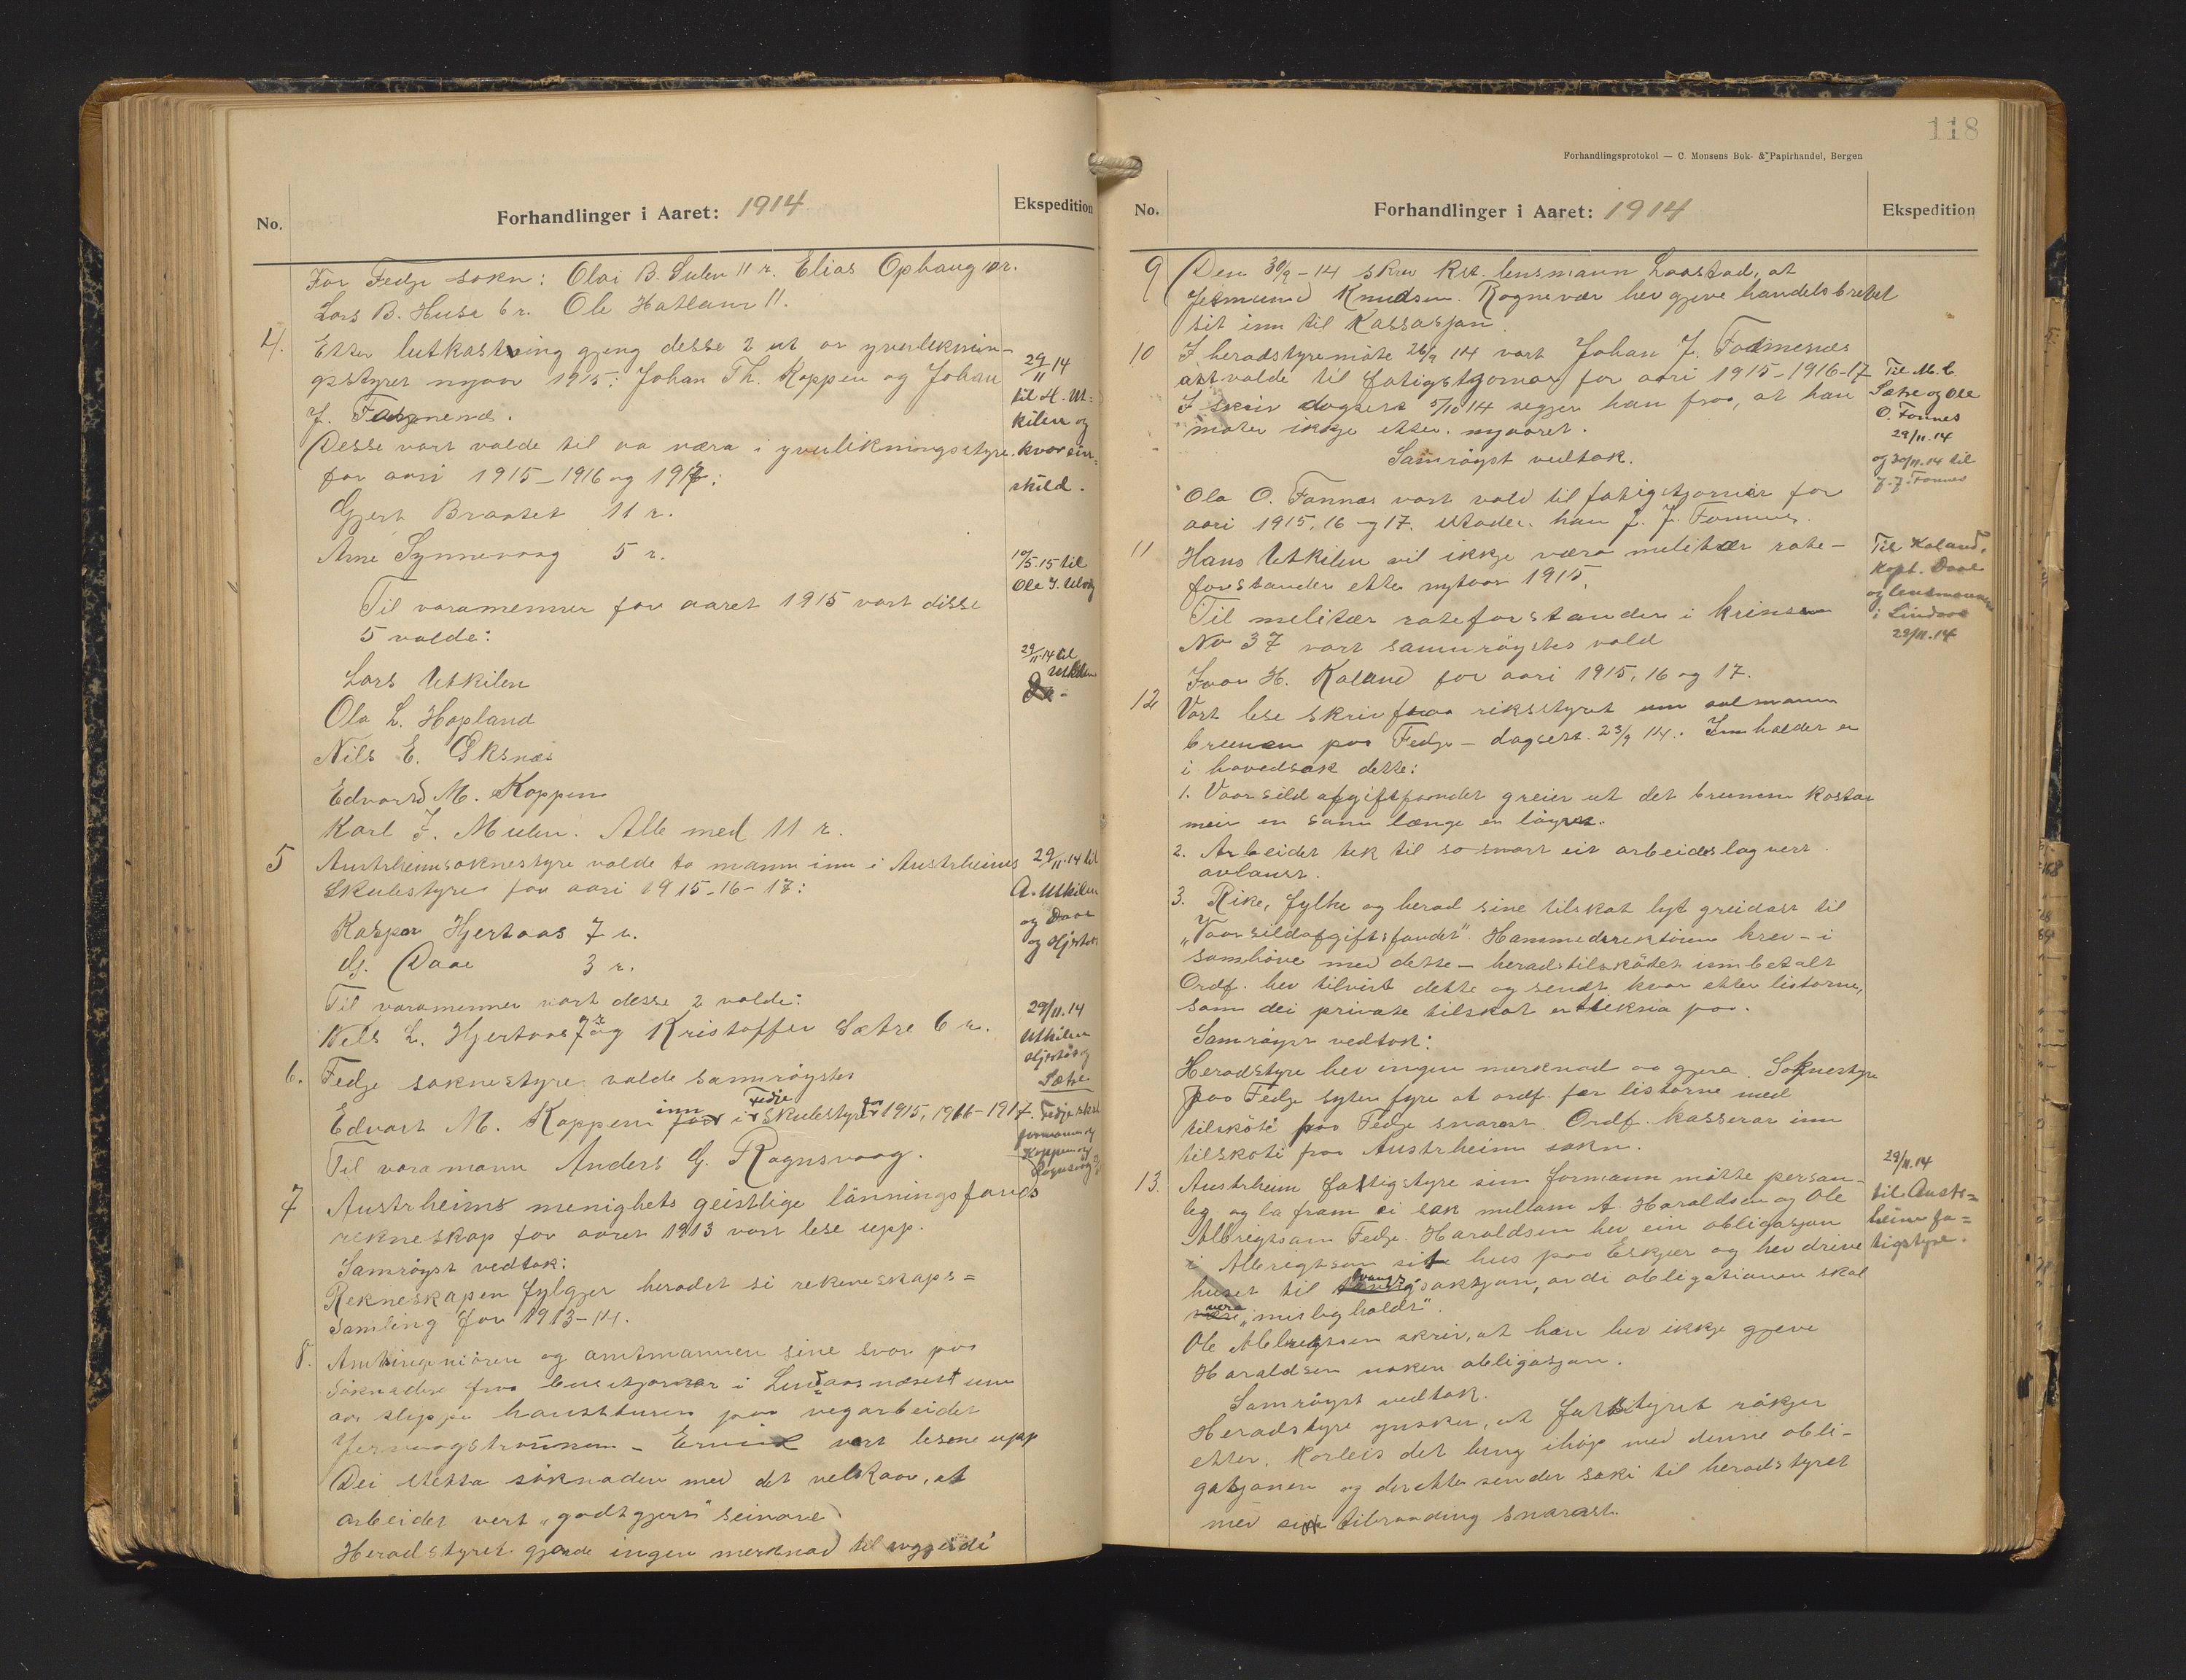 No.
Forhandlinger i Aaret: 1914
Ekspedition
For Fedje sokn: Olai B. Sulen 11 r. Elias Ophaug 10 r.
Lars B. Husa 6 r. Ole Hatland 11.
4.
Etter lutkastning gjeng desse 2 ut or yverliknin-
gsstyret nyaar 1915: Johan Th. Koppen og Johan
J.
Desse vart valde til aa væra i yverlikningsstyre
for aari 1915-1916 og 1917:
Gjert Braatet 11 r.
Arne Synnevaag 5 r.
Til varamenner for aaret 1915 vart disse
5 valde:
Lars Utkilen
Ola L. Hopland
Nils E. Øksnæs
Edvard M. Koppen
Karl J. Mulen. Alle med 11 r.
29/11 14
til H. Ut-
kilen og
kvar ein-
skild.
10/5.15 til
Ole J.
29/11.14 til
Utkilen
5
Austrheimsoknestyre valde to mann inn i Austrheims
Skulestyre for aari 1915-16-17:
Kaspar Hjertaas 7 r.
Daae 3 r.
Til varamenner vart desse 2 valde:
Nils L. Hjertaas 7 r og Kristoffer Sætre 6 r.
29/11.14 til
A. Utkilen
og Daae
og Hjertas
29/11.14
Utkilen
Hjertås og
Sætre
6.
Fedje soknestyre valde samrøystes
Edvart M. Koppen inn i Fedje Skulestyre for 1915, 1916-1917.
Til varamann Anders G. Rognsvaag.
Fedje skul
formann og
Koppen og
Rognsvåg
7
Austrheims menighets geistlige lønningsfonds
rekneskap for aaret 1913 vart lese upp.
Samrøyst vedtok:
Rekneskapen fylgjer heradet si rekneskaps=
samling for 1913-14.
8.
Amtsingeniøren og amtmannen sine svar paa
søknaden fraa i Lindaasnæset um
aa sleppe hausttursen paa vegarbeidet
- vart lesne upp
Dei støtta søknaden med det velkaar, at
arbeidet vert „godtgjort" seinare
Heradstyret gjorde ingen merknad til
118
Forhandlingsprotokol — C. Monsens Bok- & Papirhandel, Bergen
No.
Forhandlinger i Aaret: 1914
Ekspedition
9
Den 30/9-14 skriv kst. lensmann Laastad, at
Knudsen Rognevær hev gjeve handelsbrevet
sit inn til Kassasjon.
10
I heradstyremøte 26/9 14 vart Johan J.
attvalde til fatigstyrar for aari 1915-1916-17
I skriv dagsett 5/10 14 segjer han fraa, at han
møter ikkje etter nyaaret.
Samrøyst vedtok.
Ola O. Fonnes vart vald til fatigstyrar for
aari 1915, 16 og 17. istaden han J. J. Fonnes.
Til M. C.
Sætre og Ole
O. Fonnes
29/11.14
og 30/11.14 til
J. J. Fonnes
11
Hans Utkilen vil ikkje være militær rote-
forstander etter nyaar 1915.
Til militær roteforstander i krinsen
No 37 vart samrøystes vald
Ivar H. Kaland for aari 1915, 16 og 17.
Til Kaland,
Kapt. Daae
og lensmannen
i Lindaas
29/11.14
12
Vart lese skriv fraa riksstyret um
brunnen paa Fedje - dagsett 23/9 14. Innhaldet er
i hovedsak dette:
1. Vaarsildafgiftsfondet greier ut det brunnen kostar
meir en som længe er løyvt.
2. Arbeidet tek til so snart eit arbeidslag vert
avlaust.
3. Rike, fylke og herad sine tilskot lyt greidast til
„Vaarsildafgiftsfondet". Hamnedirektøren krev - i
samhøve med dette - heradstilskotet innbetalt
Ordf. hev tilvist dette og sendt krav etter listorne,
som dei private tilskot er tekna paa.
Samrøyst vedtok:
Heradstyre hev ingen merknad aa gjera. Soknestyre
paa Fedje syter fyre at ordf. fær listorne med
tilskoti fraa Fedje snarast. Ordf. kasserar inn
tilskoti fraa Austrheim sokn.
13.
Austrheim fatigstyre sin formann møtte person-
leg og la fram ei sak millom A. Haraldsen og Ole
Albrigtson Fedje. Haraldsen hev ein obligasjon
i Albrigtson sit hus paa Eskjær og hev drive
huset til tvangsauksjon, av di obligationen skal
vera „misligholdt".
Ole Albrigtsen skriv, at han hev ikkje gjeve
Haraldsen noken obligasjon.
Samrøyst vedtok.
Heradstyre ynsker, at fatstyret røkjer
etter, korleis det heng ihop med denne obli-
gasjonen og deretter sender saki til heradstyret
med si tilraading snarast.
29/11.14
til Austr=
heim fa=
tigstyre.